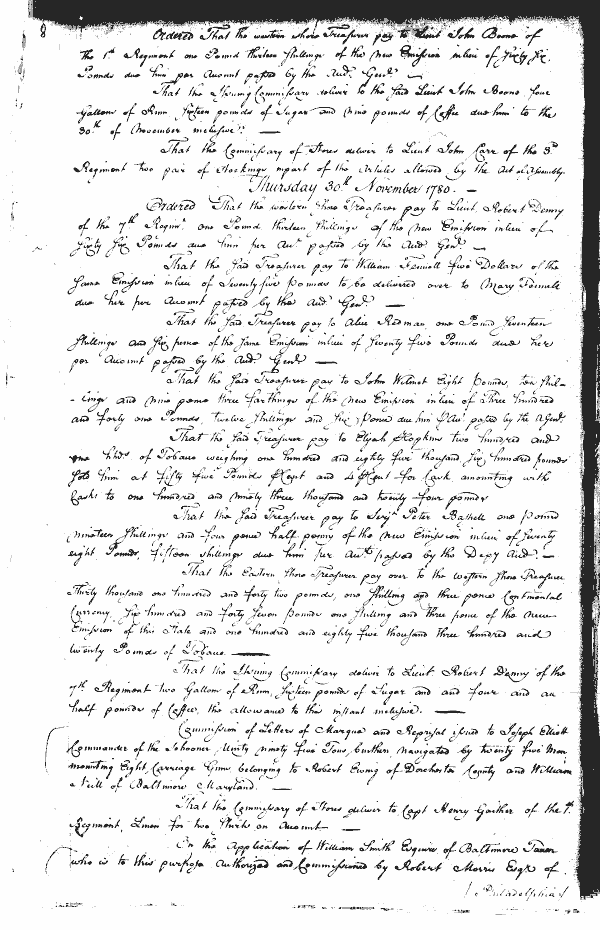 8
Ordered That the western Shore Treasurer pay to Lieut John Boone of
the 1st Regiment one Pound thirteen Shillings of the new Emission in lieu of Sixty Six
Pounds due him per Account passed by the Aud. Genl.
That the Issuing Commissary deliver to the said Lieut John Boone four
Gallons of Rum, sixteen pounds of Sugar and nine pounds of Coffee due him to the
30th of November inclusive. —
That the Commissary of Stores deliver to Lieut John Carr of the 3d
Regiment two pair of Stockings in part of the Articles allowed by the Act of Assembly.
Thursday 30th November 1780. —
Ordered That the western Shore Treasurer pay to Lieut. Robert Denny
of the 7th Regimt. one Pound thirteen Shillings of the new Emission in lieu of
Sixty Six Pounds due him per Act. passed by the Aud Genl. —
That the said Treasurer pay to William Fennell five Dollars of the
same Emission in lieu of Seventy five Pounds to be delivered over to Mary Fennell
due her per Account passed by the Aud Genl —
That the said Treasurer pay to Alice Redman one Pound Seventeen
Shillings and Six pence of the same Emission in lieu of Seventy five Pounds due her
per Account passed by the Aud. Genl. —
That the said Treasurer pay to John Wilmot Eight pounds, ten Shil-
-lings and nine pence three farthings of the new Emission in lieu of Three hundred
and forty one Pounds, twelve Shillings and Six Pence due him P Act. passed by the A Genl.
That the said Treasurer pay to Elijah Hopkins two hundred and
one hhds. of Tobacco weighing one hundred and eighty five thousand Six hundred pounds
sold him at fifty five Pounds P Cent and 4 P Cent for Cask, amounting with
Cask to one hundred and ninety three thousand and twenty four pounds
That the said Treasurer pay to Serjt. Peter Bashell one pound
nineteen Shillings and four pence half penny of the new Emission in lieu of Seventy
eight Pounds, fifteen shillings due him per Act. passed by the Depy Aud. —
That the Eastern Shore Treasurer pay over to the western Shore Treasurer
Thirty thousand one hundred and forty two pounds, one Shilling and three pence Continental
Currency, Six hundred and forty Seven pounds one Shilling and three pence of the new
Emission of this State and one hundred and eighty five thousand three hundred and
twenty Pounds of Tobacco. —
That the Issuing Commissary deliver to Lieut. Robert Denny of the
7th Regiment two Gallons of Rum, sixteen pounds of Sugar and and four and an
half pounds of Coffee, the allowance to this instant inclusive. —
Commission of Letters of Marque and Reprisal issued to Joseph Elliott
Commander of the Schooner Unity ninety five Tons burthen navigated by twenty five Men
mounting Eight Carriage Guns belonging to Robert Ewing of Dorchester County and William
Neill of Baltimore Maryland. —
That the Commissary of Stores deliver to Capt Henry Gaither of the 1st
Regiment, Linen for two Shirts on Account —
On the Application of William Smith Esquire of Baltimore Town
who is to this purpose Authorized and Commissioned by Robert Morris Esqr of
Philadelphia